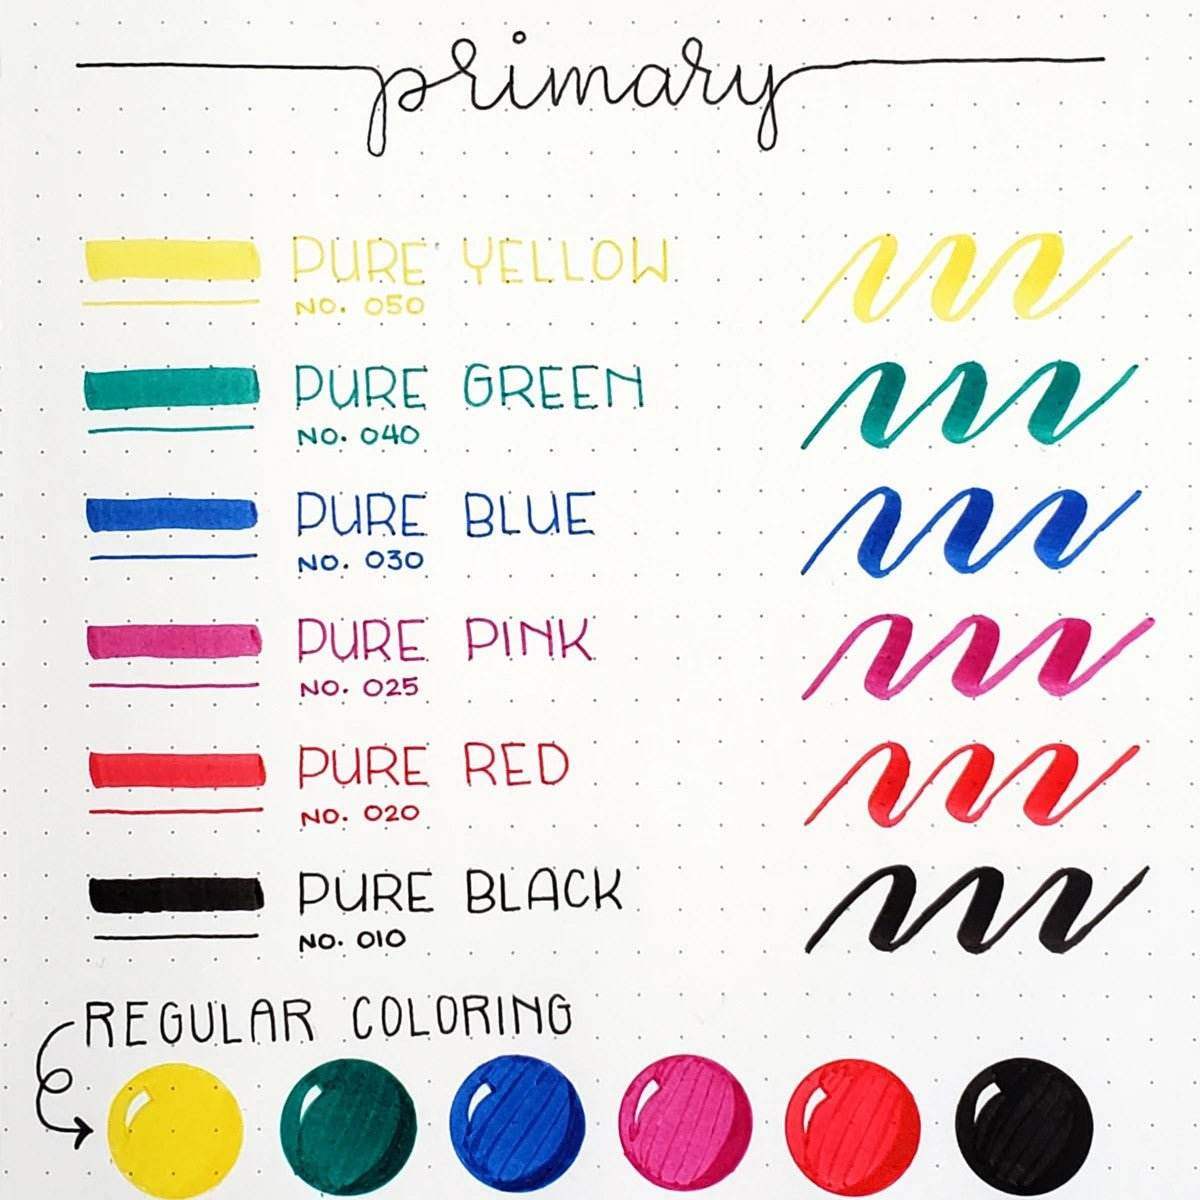 primary
PURE YELLOW
NO. 050
PURE GREEN
NO. 040
PURE BLUE
NO. 030
PURE PINK
NO. 025
PURE RED
NO. 020
PURE BLACK
NO. 010
REGULAR COLORING